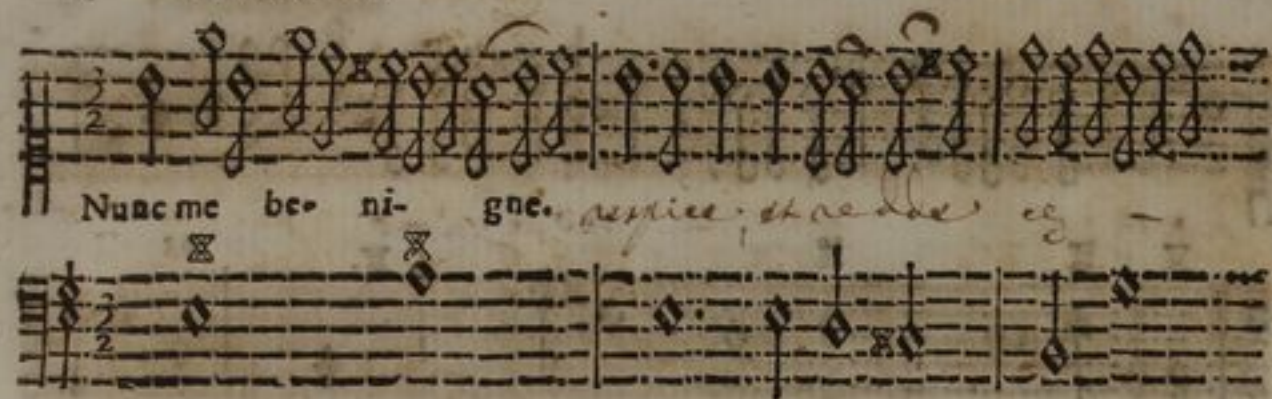 3
2
Nunc me be- ni- gne. respice et
3
2